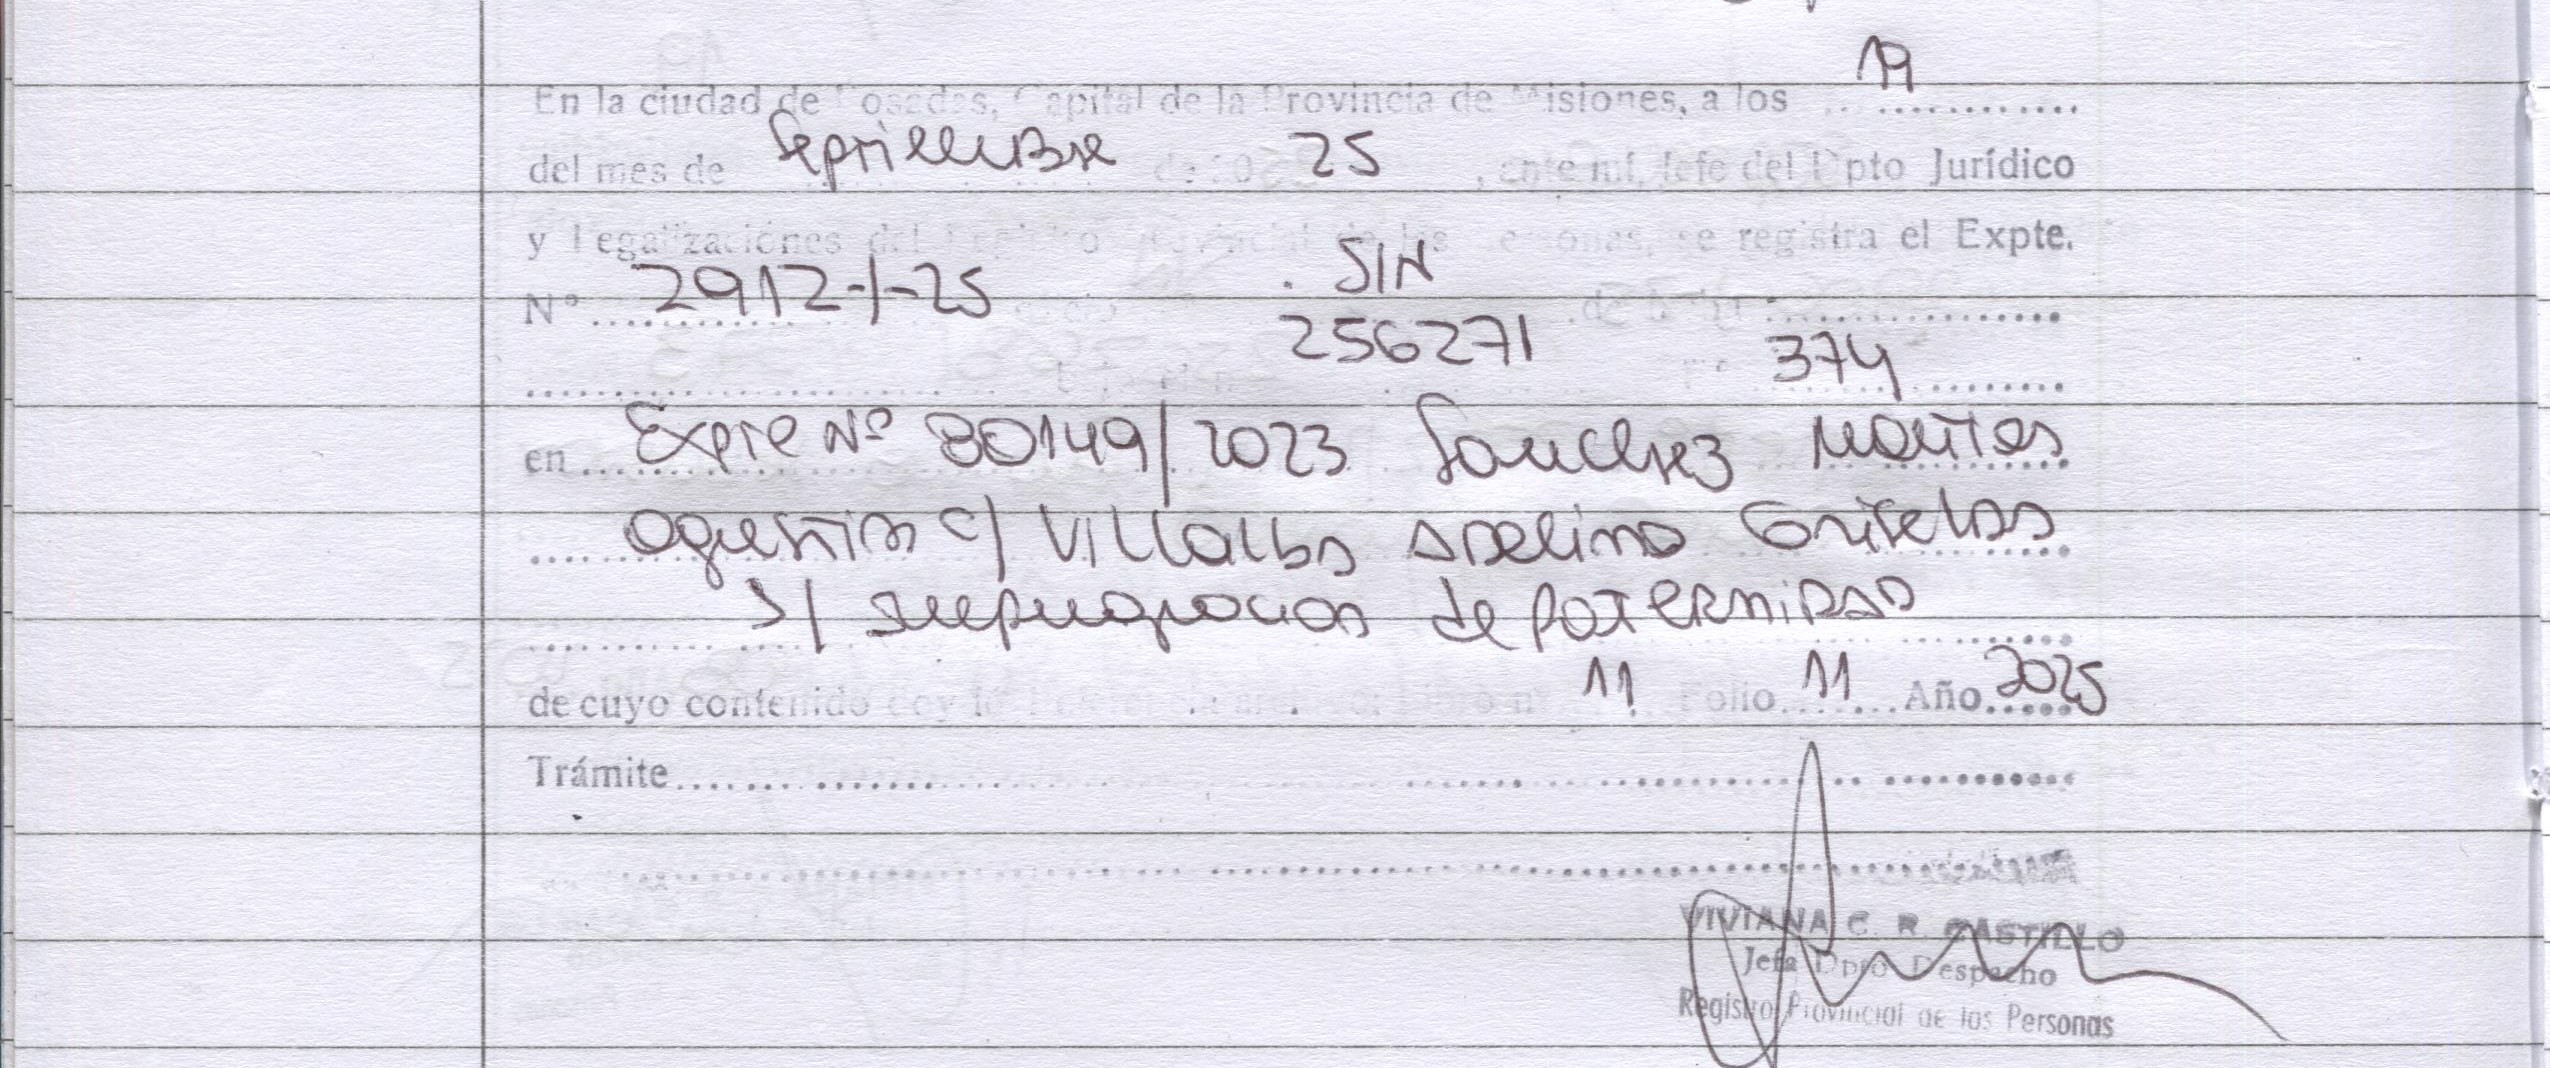 19
En la ciudad de Posadas, Capital de la Provincia de Misiones, a los ............
del mes de Septiembre de 20 25, ante mí, Jefe del Dpto Jurídico
y Legalizaciones del Registro Provincial de las Personas, se registra el Expte.
Nº 2912-I-25 . SIN
256271 374
en Expte Nº 80149/2023 Sanchez Matias
Agustin c/ Villalba Adelina Griselda
s/ Impugnacion de Paternidad
de cuyo contenido doy fe 11 Folio 11 Año 2025
Trámite
VIVIANA C. R. CASTILLO
Jefa Dpto Despacho
Registro Provincial de las Personas